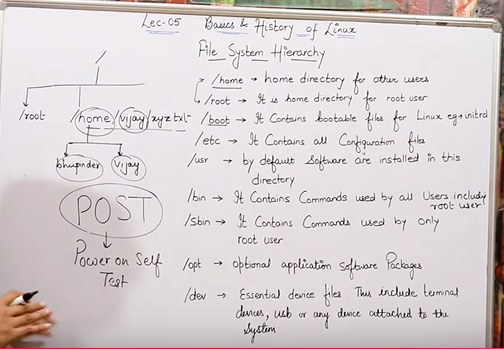 Lec-05 Basics & History of Linux
File System Hierarchy
/
/root /home /vijay /xyz.txt
bhupinder vijay
POST
Power on Self
Test
/home → home directory for other users
/root → It is home directory for root user
/boot → It Contains bootable files for Linux eg → initrd
/etc → It Contains all Configuration files
/usr → by default Software are installed in this
directory
/bin → It Contains Commands used by all Users including
root user
/sbin → It Contains Commands used by only
root user
/opt → optional application Software Packages
/dev → Essential device files. This include terminal
devices, usb or any device attached to the
System